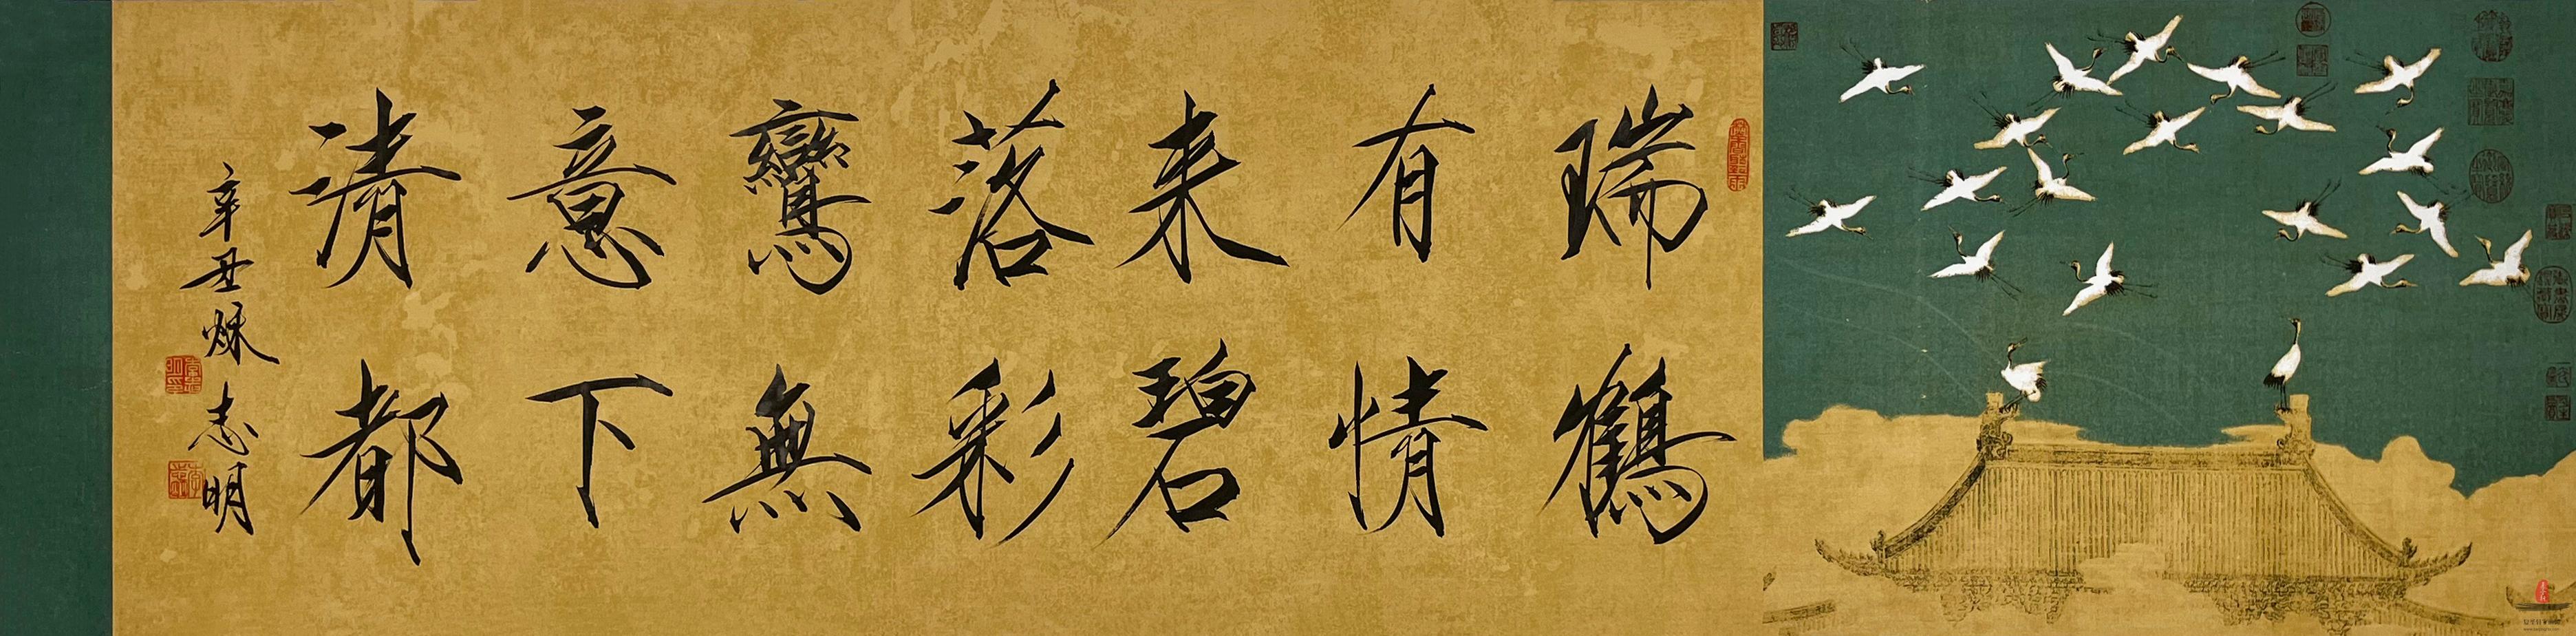 瑞鶴
有情
来碧
落彩
鸞無
意下
清都
辛丑秌志明